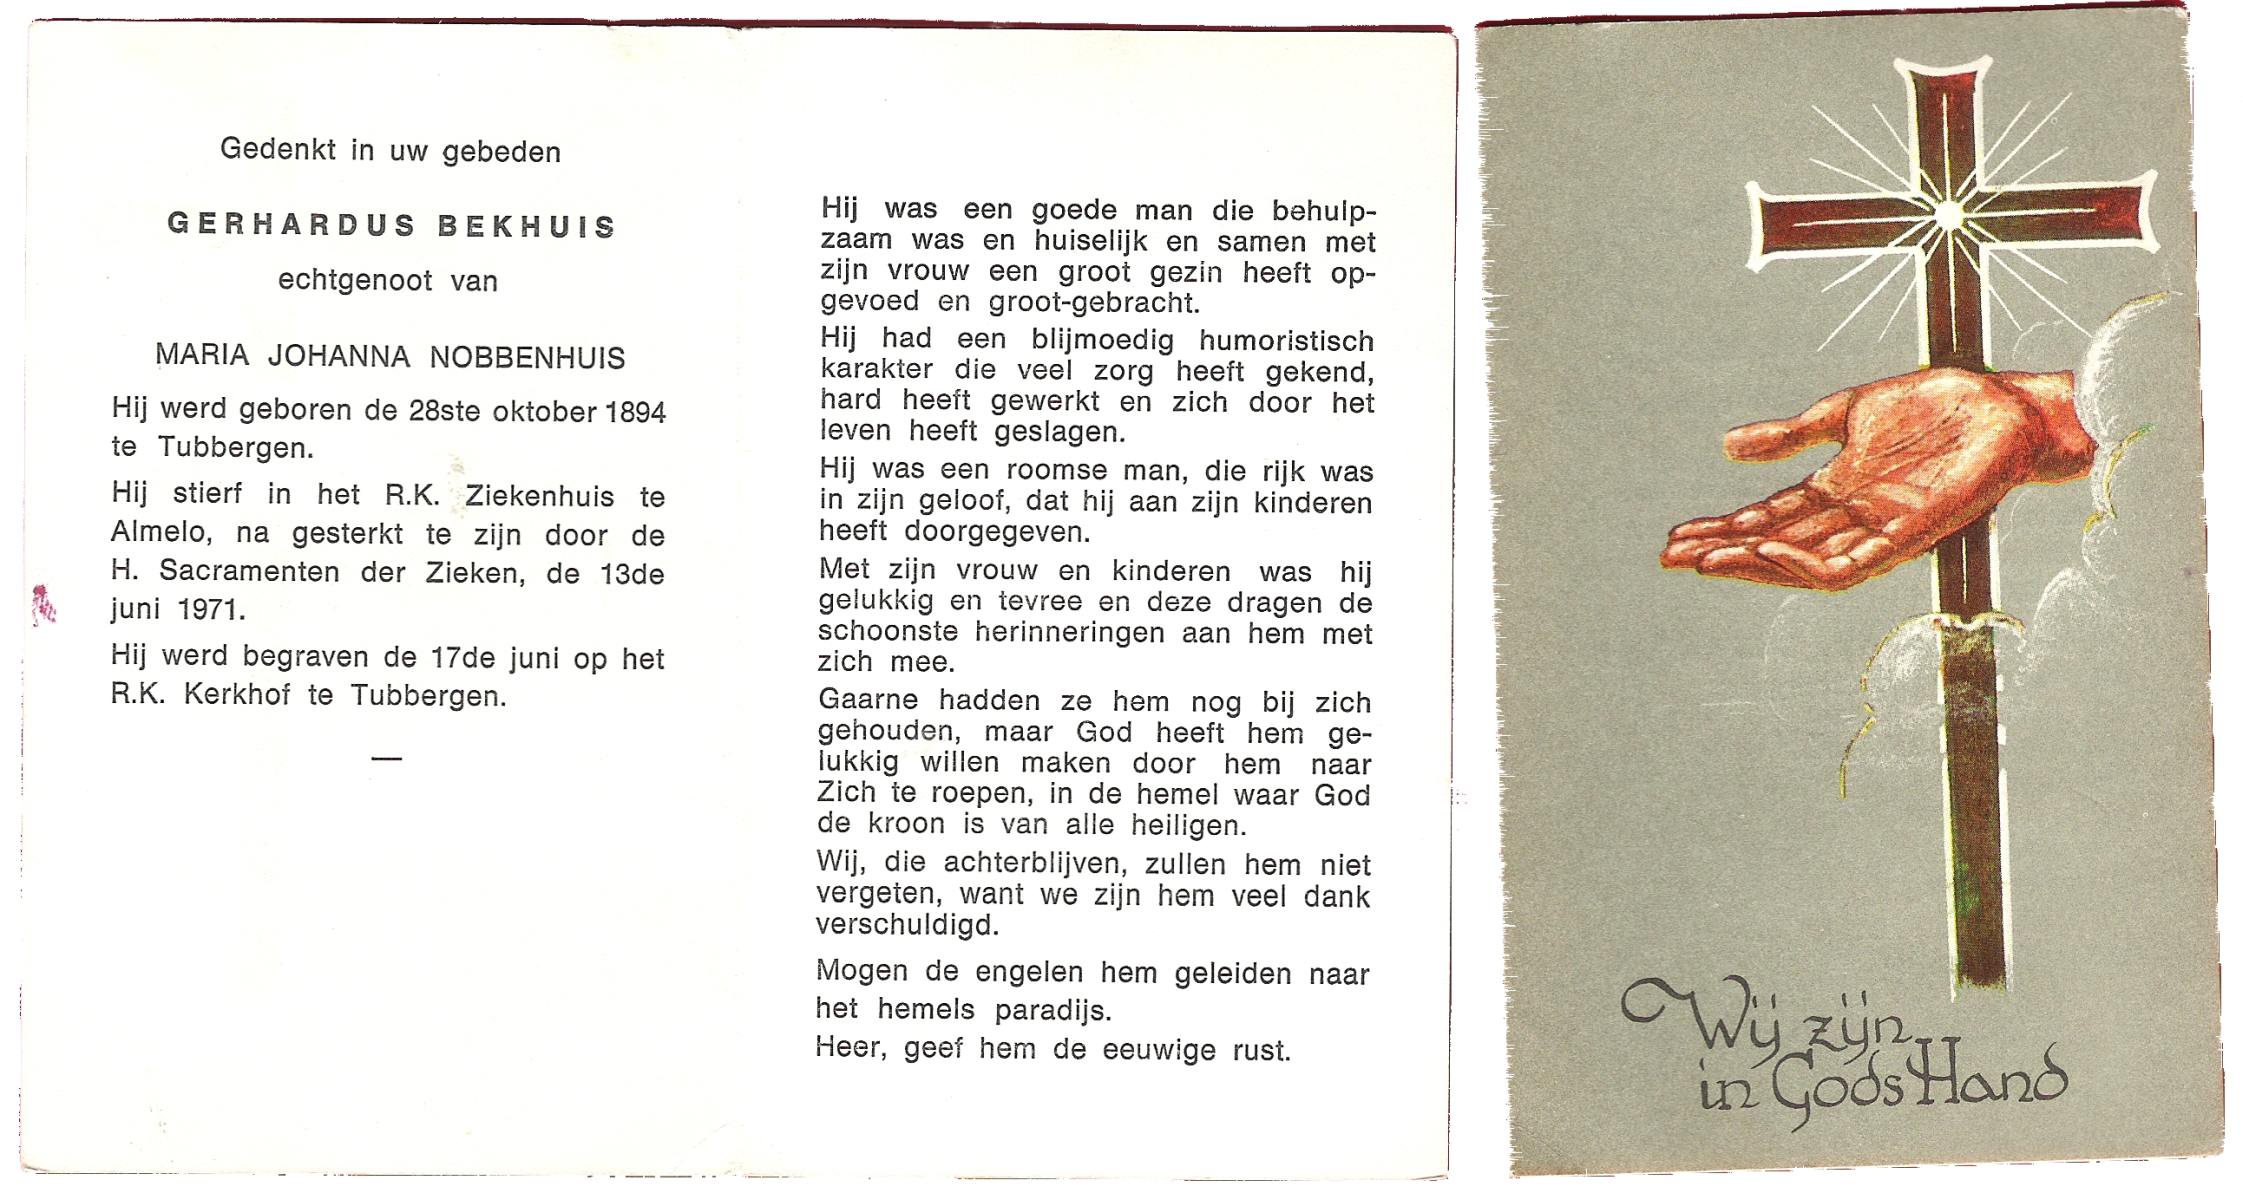 Gedenkt in uw gebeden
GERHARDUS BEKHUIS
echtgenoot van
MARIA JOHANNA NOBBENHUIS
Hij werd geboren de 28ste oktober 1894
te Tubbergen.
Hij stierf in het R.K. Ziekenhuis te
Almelo, na gesterkt te zijn door de
H. Sacramenten der Zieken, de 13de
juni 1971.
Hij werd begraven de 17de juni op het
R.K. Kerkhof te Tubbergen.
—
Hij was een goede man die behulp-
zaam was en huiselijk en samen met
zijn vrouw een groot gezin heeft op-
gevoed en groot-gebracht.
Hij had een blijmoedig humoristisch
karakter die veel zorg heeft gekend,
hard heeft gewerkt en zich door het
leven heeft geslagen.
Hij was een roomse man, die rijk was
in zijn geloof, dat hij aan zijn kinderen
heeft doorgegeven.
Met zijn vrouw en kinderen was hij
gelukkig en tevree en deze dragen de
schoonste herinneringen aan hem met
zich mee.
Gaarne hadden ze hem nog bij zich
gehouden, maar God heeft hem ge-
lukkig willen maken door hem naar
Zich te roepen, in de hemel waar God
de kroon is van alle heiligen.
Wij, die achterblijven, zullen hem niet
vergeten, want we zijn hem veel dank
verschuldigd.
Mogen de engelen hem geleiden naar
het hemels paradijs.
Heer, geef hem de eeuwige rust.
Wij zijn
in Gods Hand